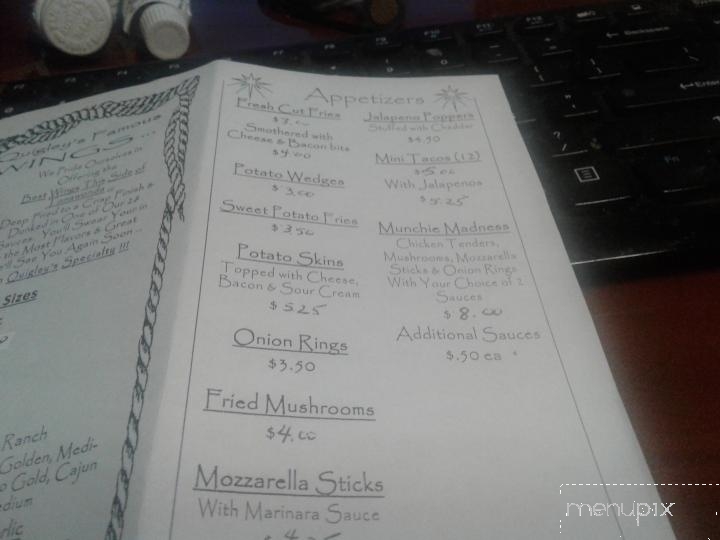 Quigley's Famous
WINGS...
We Pride Ourselves in
Offering the
Best Wings This Side of
Deep Fried to a Crisp Finish &
Dunked in One of Our 28
Sauces. You'll Swear Your in
the Most Flavors & Great
We'll See You Again Soon...
Quigley's Specialty !!!
Sizes
Ranch
Golden, Medi-
Gold, Cajun
Appetizers
Fresh Cut Fries
$3.00
Smothered with
Cheese & Bacon bits
$4.00
Potato Wedges
$3.00
Sweet Potato Fries
$3.50
Potato Skins
Topped with Cheese,
Bacon & Sour Cream
$5.25
Onion Rings
$3.50
Fried Mushrooms
$4.00
Mozzarella Sticks
With Marinara Sauce
Jalapeno Poppers
Stuffed with Cheddar
$4.50
Mini Tacos (12)
$5.00
With Jalapenos
$5.25
Munchie Madness
Chicken Tenders,
Mushrooms, Mozzarella
Sticks & Onion Rings
With Your Choice of 2
Sauces
$8.00
Additional Sauces
$.50 ea
Backspace
Enter
Fn
menupix